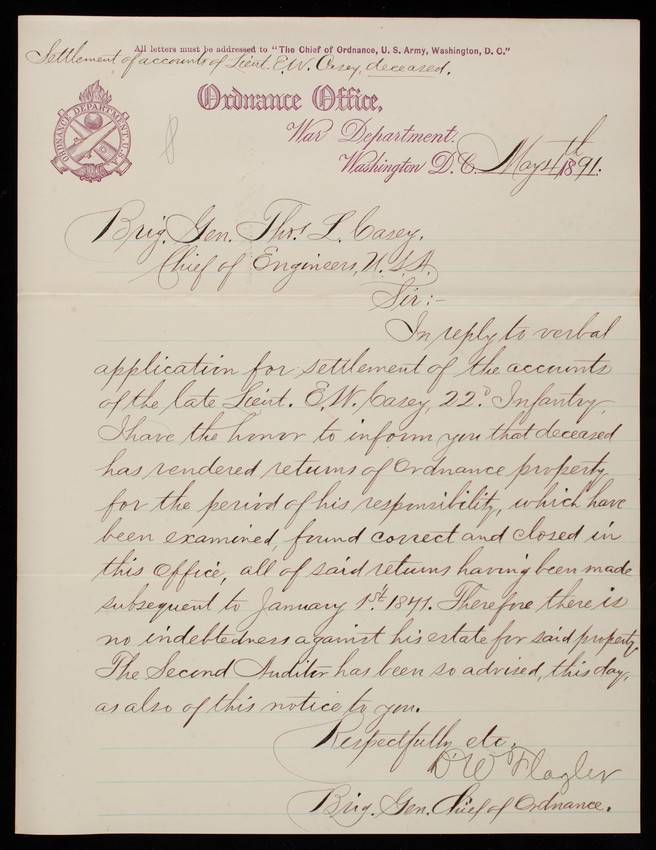 All letters must be addressed to "The Chief of Ordnance, U. S. Army, Washington, D. C."
Settlement of accounts of Lieut. E.W. Casey, deceased.
ORDNANCE DEPARTMENT. U.S.A.
Ordnance Office,
8
War Department.
Washington D.C. May 4th 1891.
Brig. Gen. Thos. L. Casey,
Chief of Engineers, U.S.A.
Sir:-
In reply to verbal
application for settlement of the accounts
of the late Lieut. E.W. Casey, 22d Infantry,
I have the honor to inform you that deceased
has rendered returns of Ordnance property
for the period of his responsibility, which have
been examined, found correct and closed in
this Office, all of said returns having been made
subsequent to January 1st. 1841. Therefore there is
no indebtedness against his estate for said property.
The Second Auditor has been so advised, this day,
as also of this notice to you.
Respectfully etc.
D W Flagler
Brig. Gen. Chief of Ordnance.